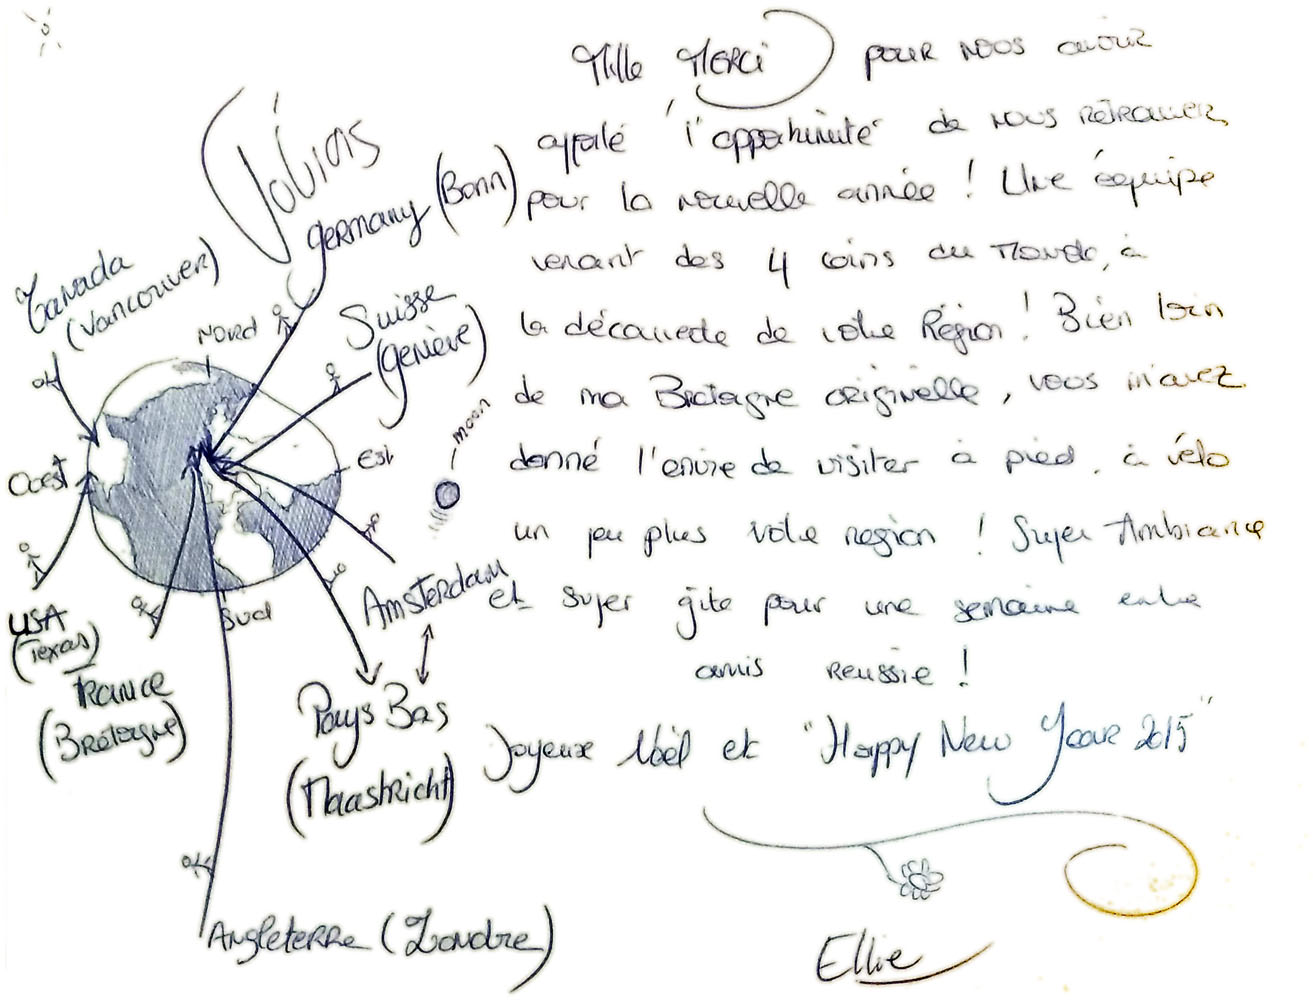 Mille Merci pour nous avoir
apporté l'opportunité de nous retrouver,
pour la nouvelle année ! Une équipe
venant des 4 coins du Monde, à
la découverte de votre Région ! Bien loin
de ma Bretagne originelle, vous m'avez
donné l'envie de visiter à pied, à vélo
un peu plus votre region ! Super Ambiance
et super gîte pour une semaine entre
amis reussie !
Joyeux Noël et "Happy New Year 2015"
Ellie
germany (Bonn)
Canada
(Vancouver)
Nord
Suisse
(Genève)
moon
Est
Ouest
USA
(Texas)
Sud
Amsterdam
France
(Bretagne)
Pays Bas
(Maastricht)
Angleterre (Londre)